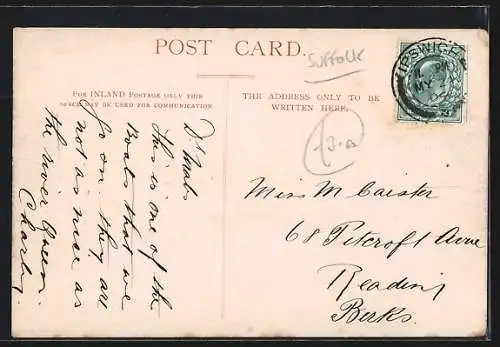 POST CARD.
Suffolk
IPSWICH
MY
FOR INLAND POSTAGE ONLY THIS
SPACE MAY BE USED FOR COMMUNICATION.
THE ADDRESS ONLY TO BE
WRITTEN HERE.
Dr Mabs
this is one of the
Boats that we
go on they are
not as nice as
the river Queen.
Charley
Miss M Caister
68 Pitcroft Avne
Reading
Berks.